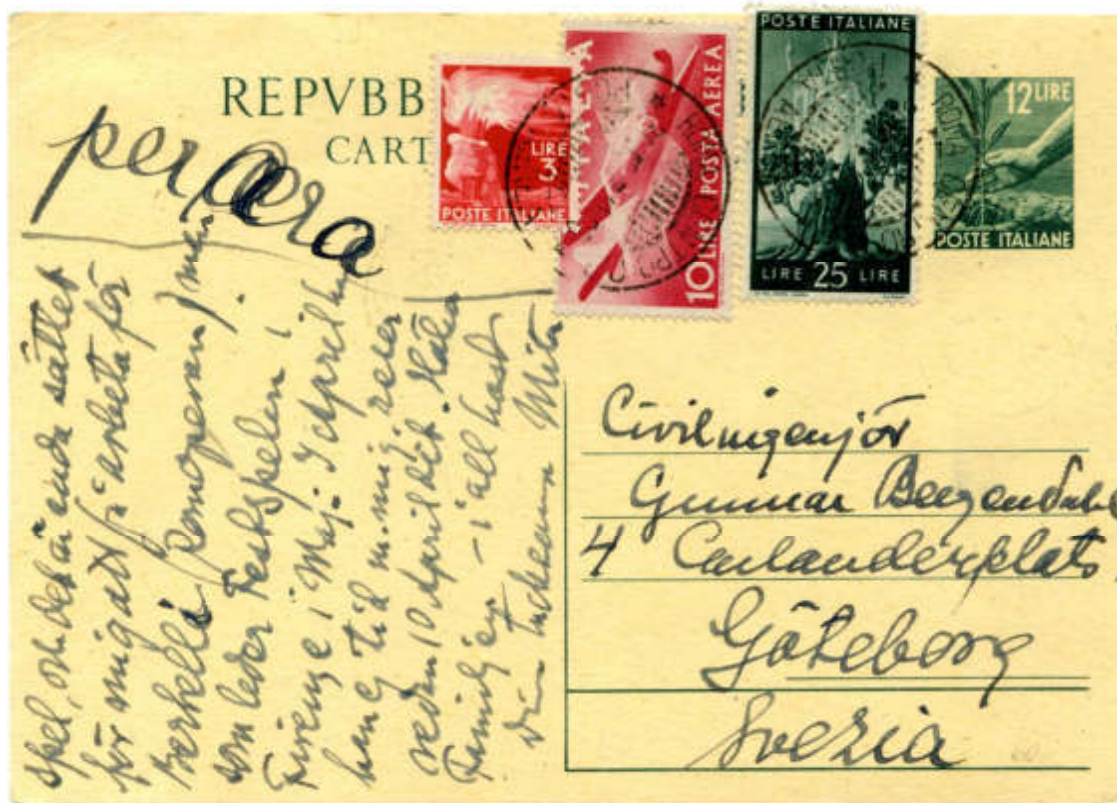 REPVBB
CART
per aerea
LIRE
3
POSTE ITALIANE
10 LIRE POSTA AEREA
POSTE ITALIANE
LIRE 25 LIRE
12 LIRE
POSTE ITALIANE
ROMA
spel, och det är enda sättet
för mig att få arbeta för
Romoperan
som leder Festspelen i
Firenze i Maj. I April
han tid m. mig reser
redan 10 April dit. Hälsa
Familjen – i all hast
Din
Civilingenjör
Gunnar Bergendahl
4 Carlanderplats
Göteborg
Svezia